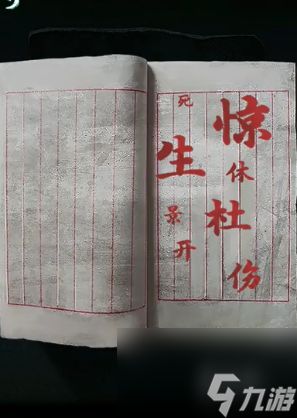 惊休杜伤
死生景开
九游